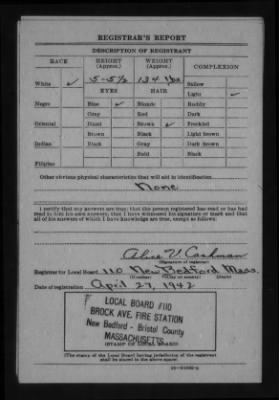 REGISTRAR'S REPORT
DESCRIPTION OF REGISTRANT
RACE HEIGHT (Approx.) WEIGHT (Approx.) COMPLEXION
White ✓ 5-5½ 134 lbs Sallow
EYES HAIR Light ✓
Negro Blue ✓ Blonde Ruddy
Gray Red Dark
Oriental Hazel Brown ✓ Freckled
Brown Black Light brown
Indian Black Gray Dark brown
Bald Black
Filipino
Other obvious physical characteristics that will aid in identification
None
I certify that my answers are true; that the person registered has read or has had
read to him his own answers; that I have witnessed his signature or mark and that
all of his answers of which I have knowledge are true, except as follows:
Alice V. Cashman
(Signature of registrar)
Registrar for Local Board 110 New Bedford Mass.
(Number) (City or county) (State)
Date of registration April 27, 1942
LOCAL BOARD #110
BROCK AVE FIRE STATION
New Bedford - Bristol County
MASSACHUSETTS
(STAMP OF LOCAL BOARD)
(The stamp of the Local Board having jurisdiction of the registrant
shall be placed in the above space)